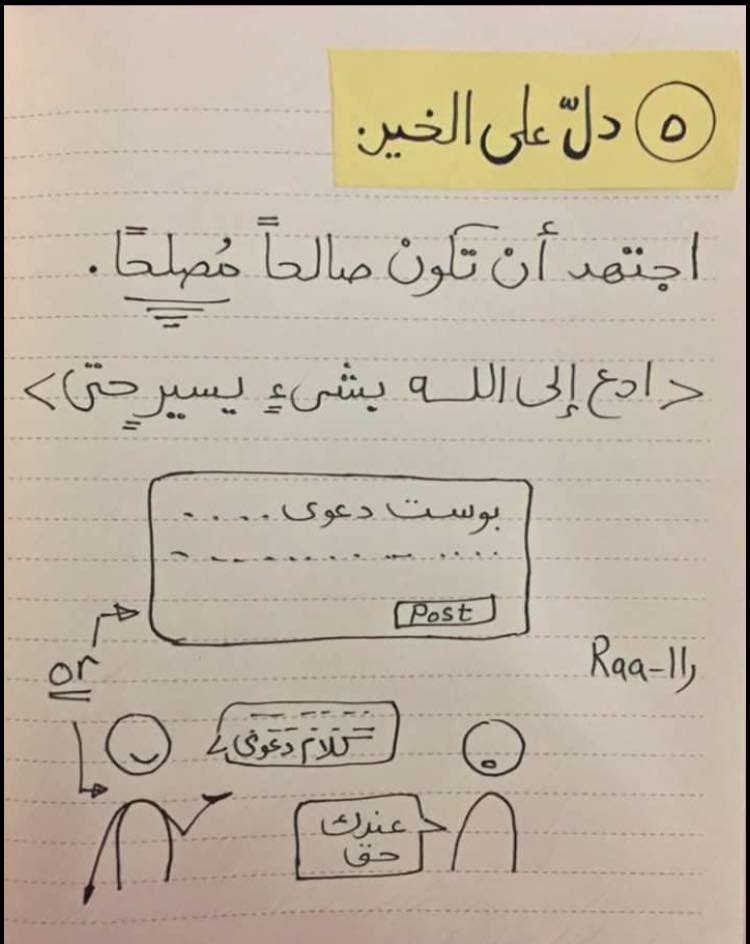 ٥ دلّ على الخير.
اجتهد أن تكون صالحاً مُصلحًا.
< ادع إلى الله بشيءٍ يسيرٍ حتى >
بوست دعوى ....
Post
or
Raa-راا
كلام دعوى
عندك
حق